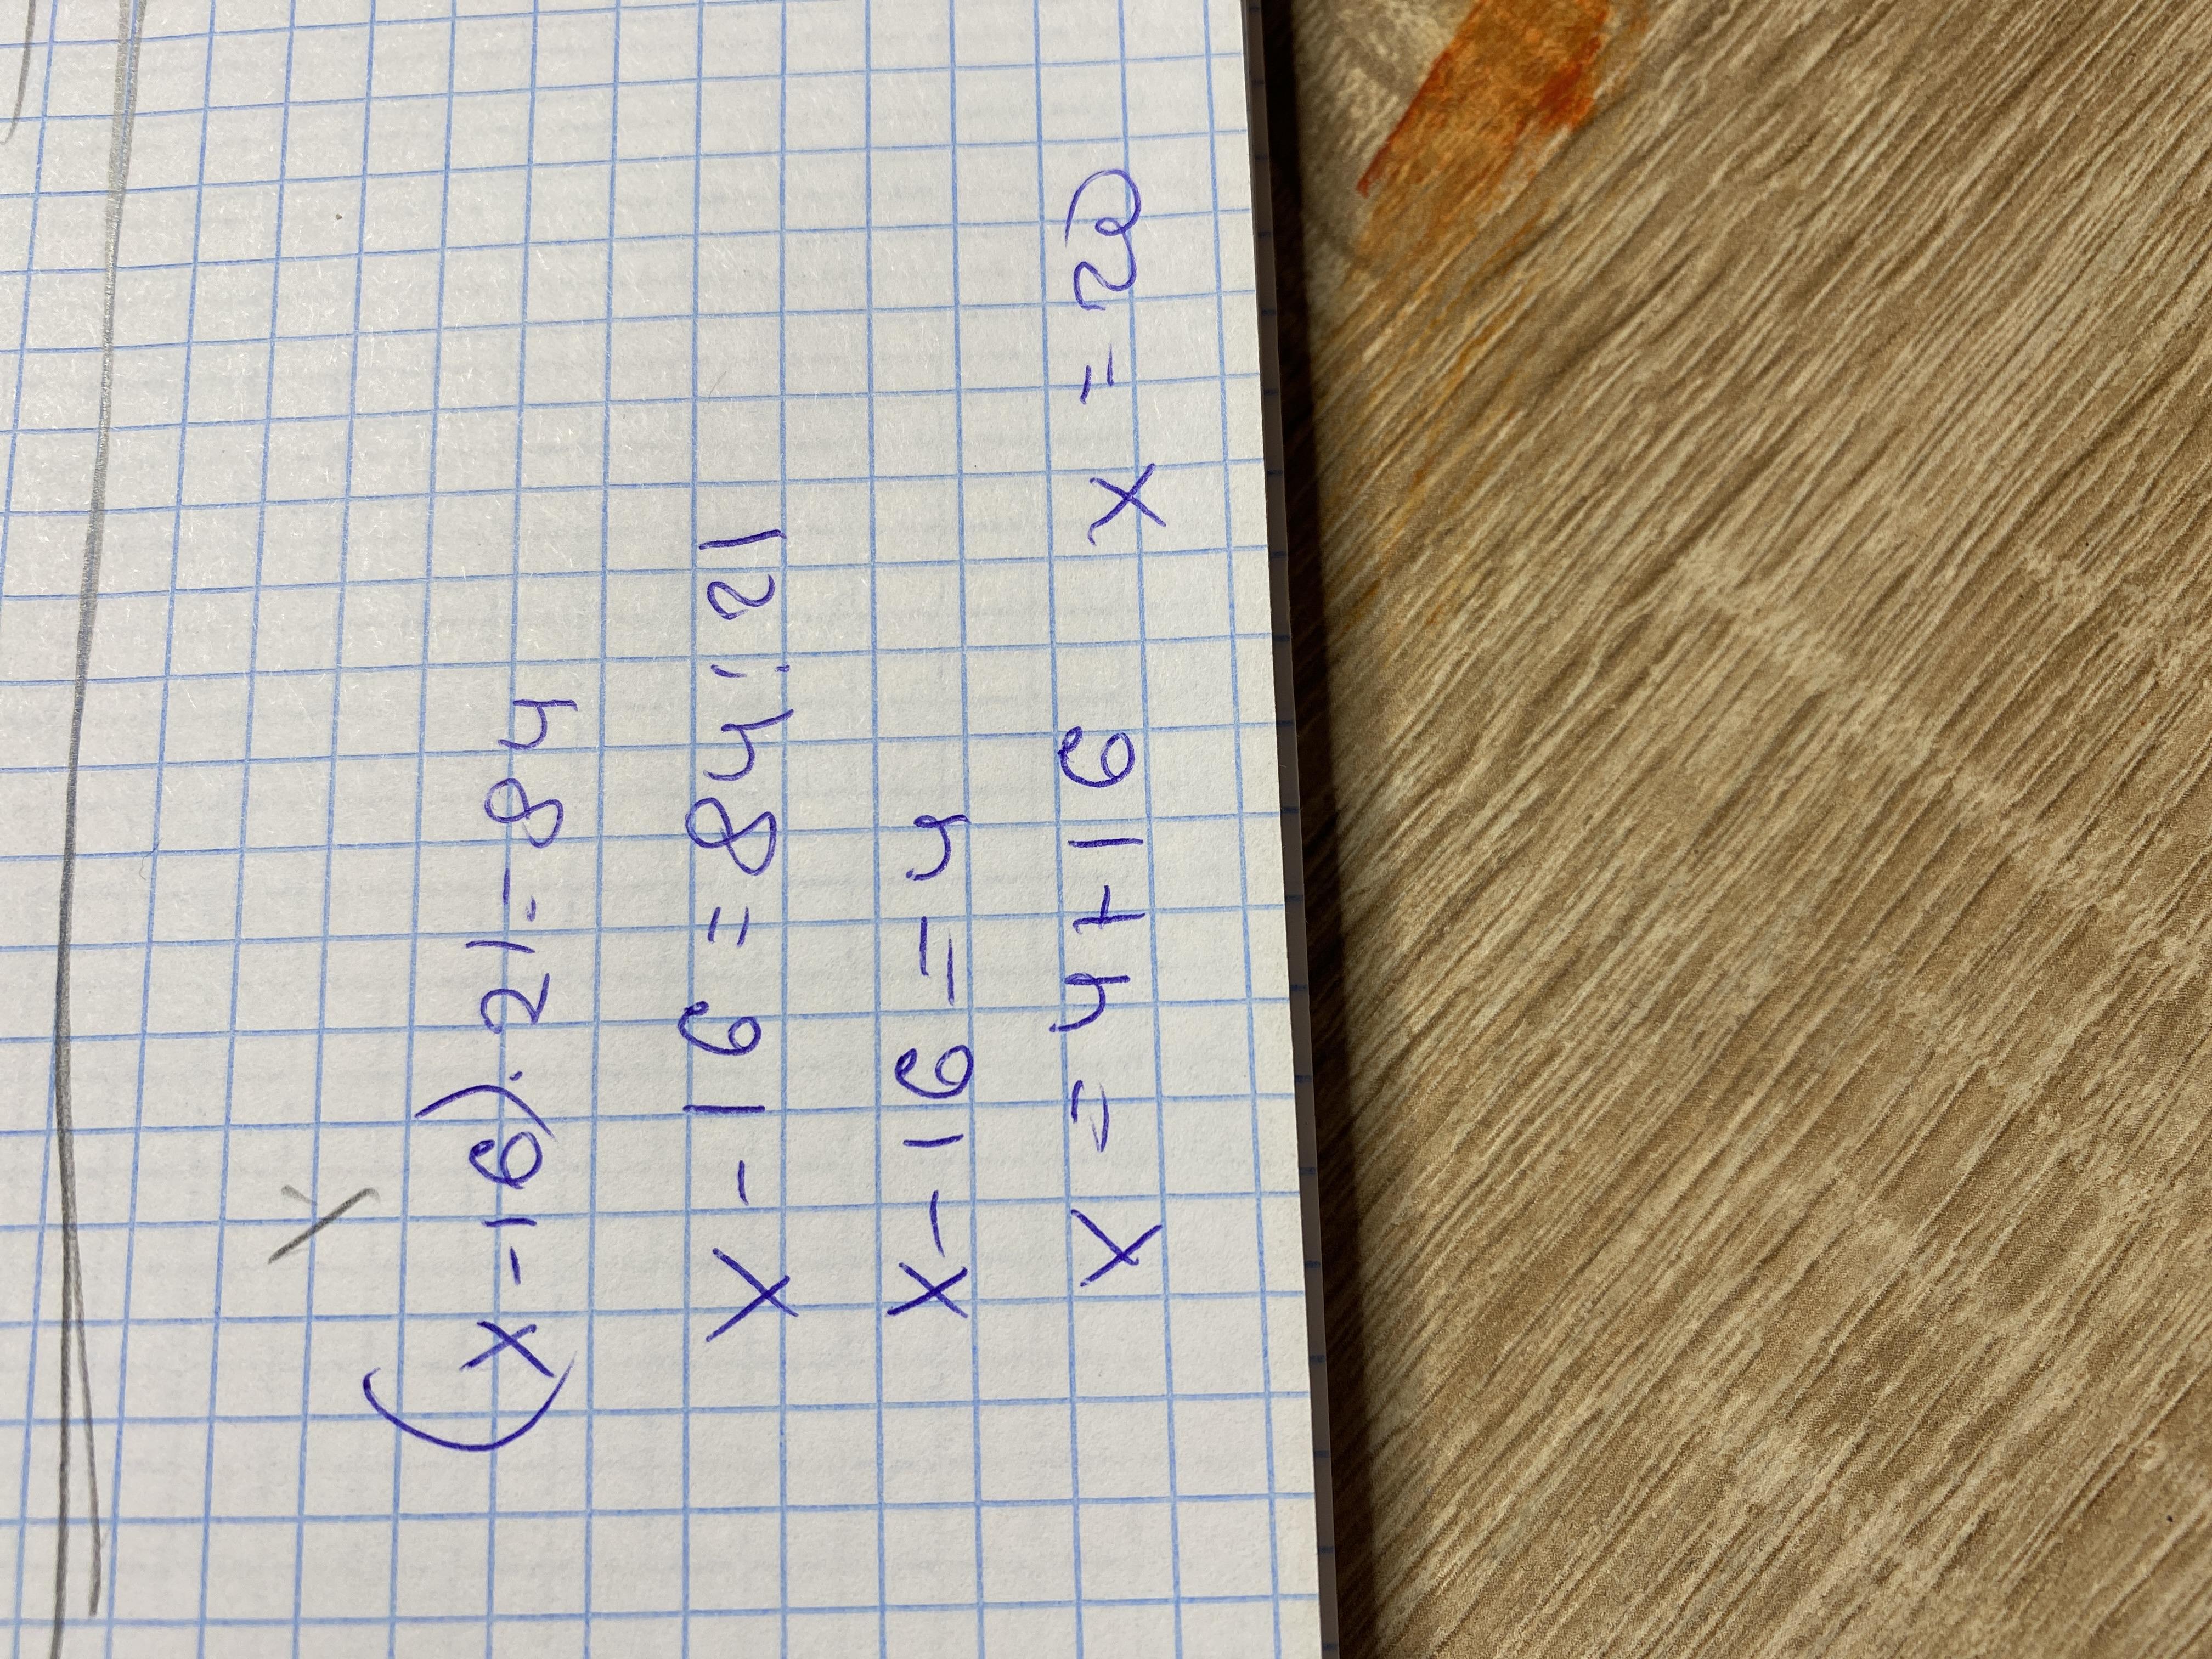 (x-16)·21=84
x-16=84:21
x-16=4
x=4+16 x=20